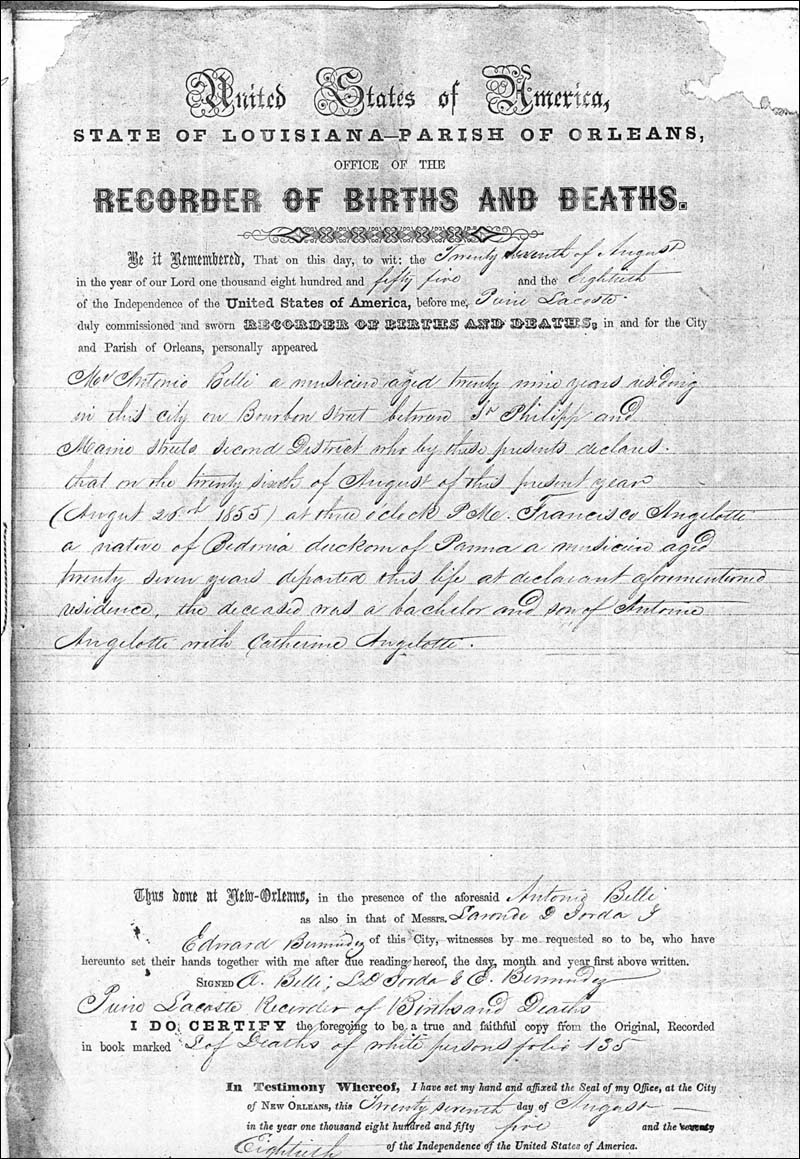 United States of America,
STATE OF LOUISIANA—PARISH OF ORLEANS,
OFFICE OF THE
RECORDER OF BIRTHS AND DEATHS.
Be it Remembered, That on this day, to wit: the Twenty seventh of August
in the year of our Lord one thousand eight hundred and fifty five and the Eightieth
of the Independence of the United States of America, before me, Lacoste
duly commissioned and sworn RECORDER OF BIRTHS AND DEATHS, in and for the City
and Parish of Orleans, personally appeared
Mr Antonio Belli a musician aged twenty nine years residing
in this city on Bourbon street between St Philipp and
Maine streets second District who by these presents declares.
that on the twenty sixth of August of this present year
(August 26th 1855) at three o'clock P.M. Francisco Angelotti
a native of Bedonia duckom of Parma a musician aged
twenty seven years departed this life at declarant aforementioned
residence, the deceased was a bachelor and son of Antonio
Angelotti with Catherine Angelotti.
Thus done at New-Orleans, in the presence of the aforesaid Antonio Belli
as also in that of Messrs. Laronde D Jorda &
Edward Bermudez of this City, witnesses by me requested so to be, who have
hereunto set their hands together with me after due reading hereof, the day, month and year first above written.
SIGNED A. Belli; L.D Jorda & E. Bermudez
Lacoste Recorder of Births and Deaths
I DO CERTIFY the foregoing to be a true and faithful copy from the Original, Recorded
in book marked of Deaths of white persons folio 135
In Testimony Whereof, I have set my hand and affixed the Seal of my Office, at the City
of NEW ORLEANS, this Twenty seventh day of August
in the year one thousand eight hundred and fifty five and the seventy
Eightieth of the Independence of the United States of America.